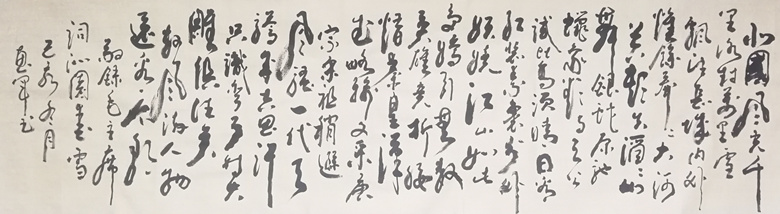 北國風光千
里冰封萬里雪
飄望長城內外
惟餘莽莽大河
上下頓失滔滔山
舞銀蛇原馳
蠟象欲與天公
試比高須晴日看
紅裝素裹分外
妖嬈江山如此
多嬌引無數
英雄竞折腰
惜秦皇漢
武略輸文采唐
宗宋祖稍遜
風騷一代天
驕成吉思汗
只識彎弓射大
雕俱往矣
數風流人物
還看今朝
敬錄毛主席
詞沁園春雪
己亥冬月